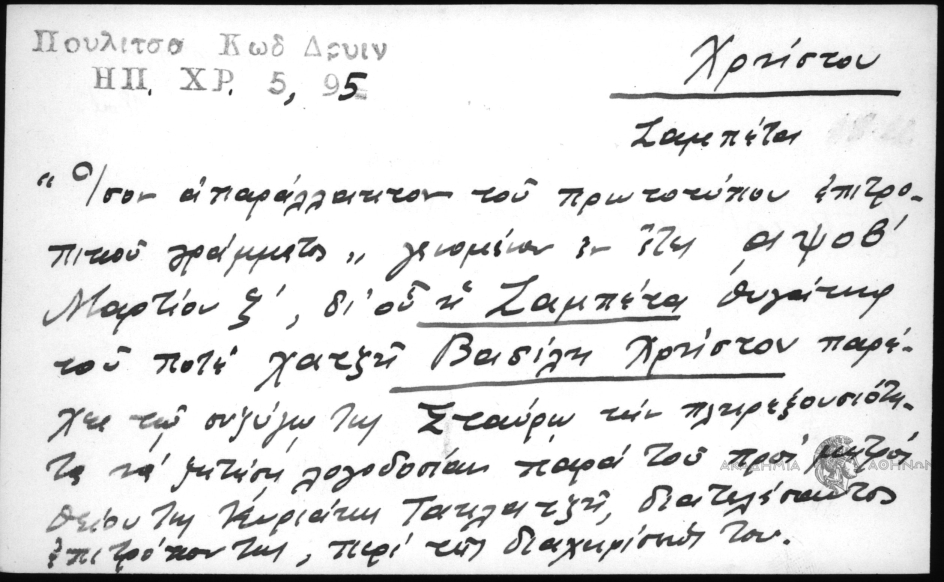 Πουλιτσα Κωδ Δρυιν
ΗΠ. ΧΡ. 5, 95
Χρήστου
Ζαμπέτα
"Ίσον ἀπαράλλακτον τοῦ πρωτοτύπου ἐπιτρο-
πικοῦ γράμματος" γενομένον ἐν ἔτει αψοβ'
Μαρτίου ξ', δι' οὗ ἡ Ζαμπέτα θυγάτηρ
τοῦ ποτέ χατζῆ Βασίλη Χρήστου παρέ-
χει τῷ συζύγῳ της Σταύρῳ τήν πληρεξουσιότη-
τα νά ζητήσῃ λογοδοσίαν παρά τοῦ πρός μητρός
θείου της Κυριάκη, διατελέσαντος
ἐπιτρόπου της, περί τῆς διαχειρίσεώς του.
ΑΚΑΔΗΜΙΑ ΑΘΗΝΩΝ